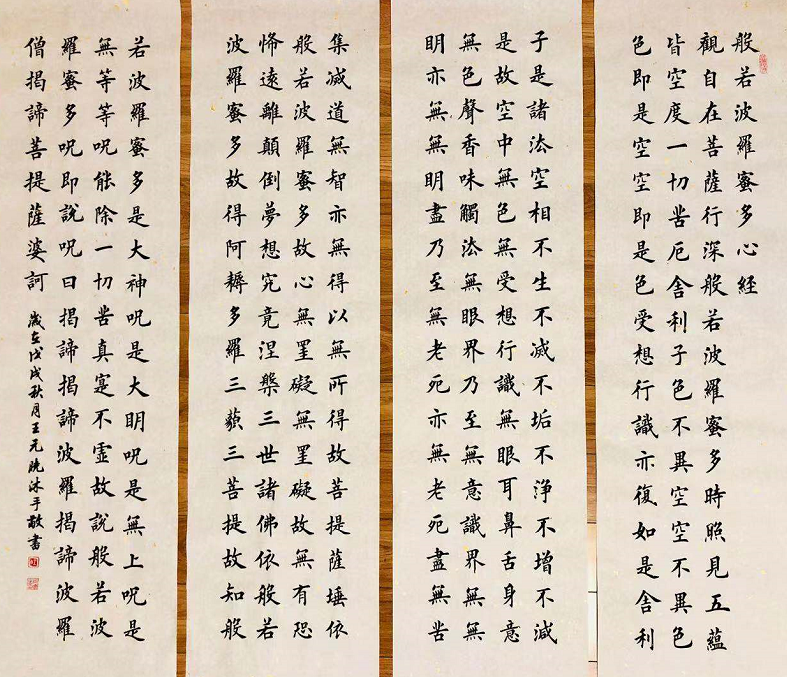 般若波羅蜜多心経
觀自在菩薩行深般若波羅蜜多時照見五蘊
皆空度一切苦厄舎利子色不異空空不異色
色即是空空即是色受想行識亦復如是舎利
子是諸法空相不生不滅不垢不淨不增不減
是故空中無色無受想行識無眼耳鼻舌身意
無色聲香味觸法無眼界乃至無意識界無無
眀亦無無眀盡乃至無老死亦無老死盡無苦
集滅道無智亦無得以無所得故菩提薩埵依
般若波羅蜜多故心無罣礙無罣礙故無有恐
怖遠離顛倒夢想究竟涅槃三世諸佛依般若
波羅蜜多故得阿耨多羅三藐三菩提故知般
若波羅蜜多是大神呪是大明呪是無上呪是
無等等呪能除一切苦真寔不虛故說般若波
羅蜜多呪即說呪曰揭諦揭諦波羅揭諦波羅
僧揭諦菩提薩婆訶
歲在戊戌秋月王元沐手敬書